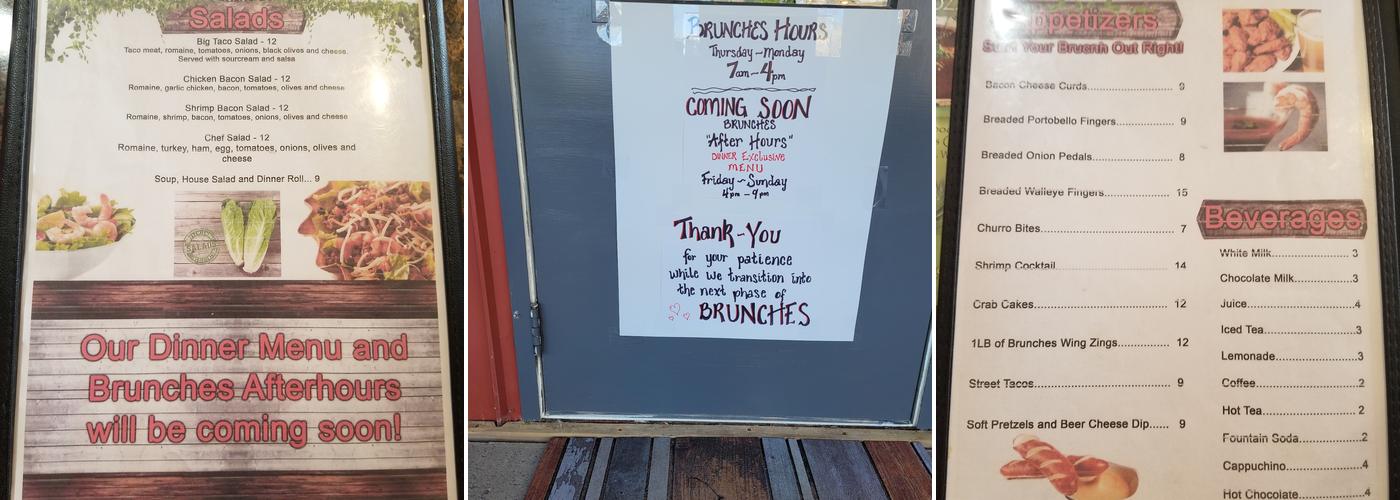 Salads
Big Taco Salad - 12
Taco meat, romaine, tomatoes, onions, black olives and cheese.
Served with sourcream and salsa
Chicken Bacon Salad - 12
Romaine, garlic chicken, bacon, tomatoes, olives and cheese
Shrimp Bacon Salad - 12
Romaine, shrimp, bacon, tomatoes, onions, olives and cheese
Chef Salad - 12
Romaine, turkey, ham, egg, tomatoes, onions, olives and
cheese
Soup, House Salad and Dinner Roll... 9
SALADS
Our Dinner Menu and
Brunches Afterhours
will be coming soon!
BRUNCHES HOURS
Thursday-Monday
7am-4pm
COMING SOON
BRUNCHES
"After Hours"
DINNER Exclusive
MENU
Friday-Sunday
4pm-9pm
Thank-You
for your patience
while we transition into
the next phase of
BRUNCHES
Appetizers
Start Your Bruenh Out Right!
Bacon Cheese Curds 9
Breaded Portobello Fingers 9
Breaded Onion Pedals 8
Breaded Walleye Fingers 15
Churro Bites 7
Shrimp Cocktail 14
Crab Cakes 12
1LB of Brunches Wing Zings 12
Street Tacos 9
Soft Pretzels and Beer Cheese Dip...... 9
Beverages
White Milk 3
Chocolate Milk 3
Juice 4
Iced Tea 3
Lemonade 3
Coffee 2
Hot Tea 2
Fountain Soda 2
Cappuchino 4
Hot Chocolate 4